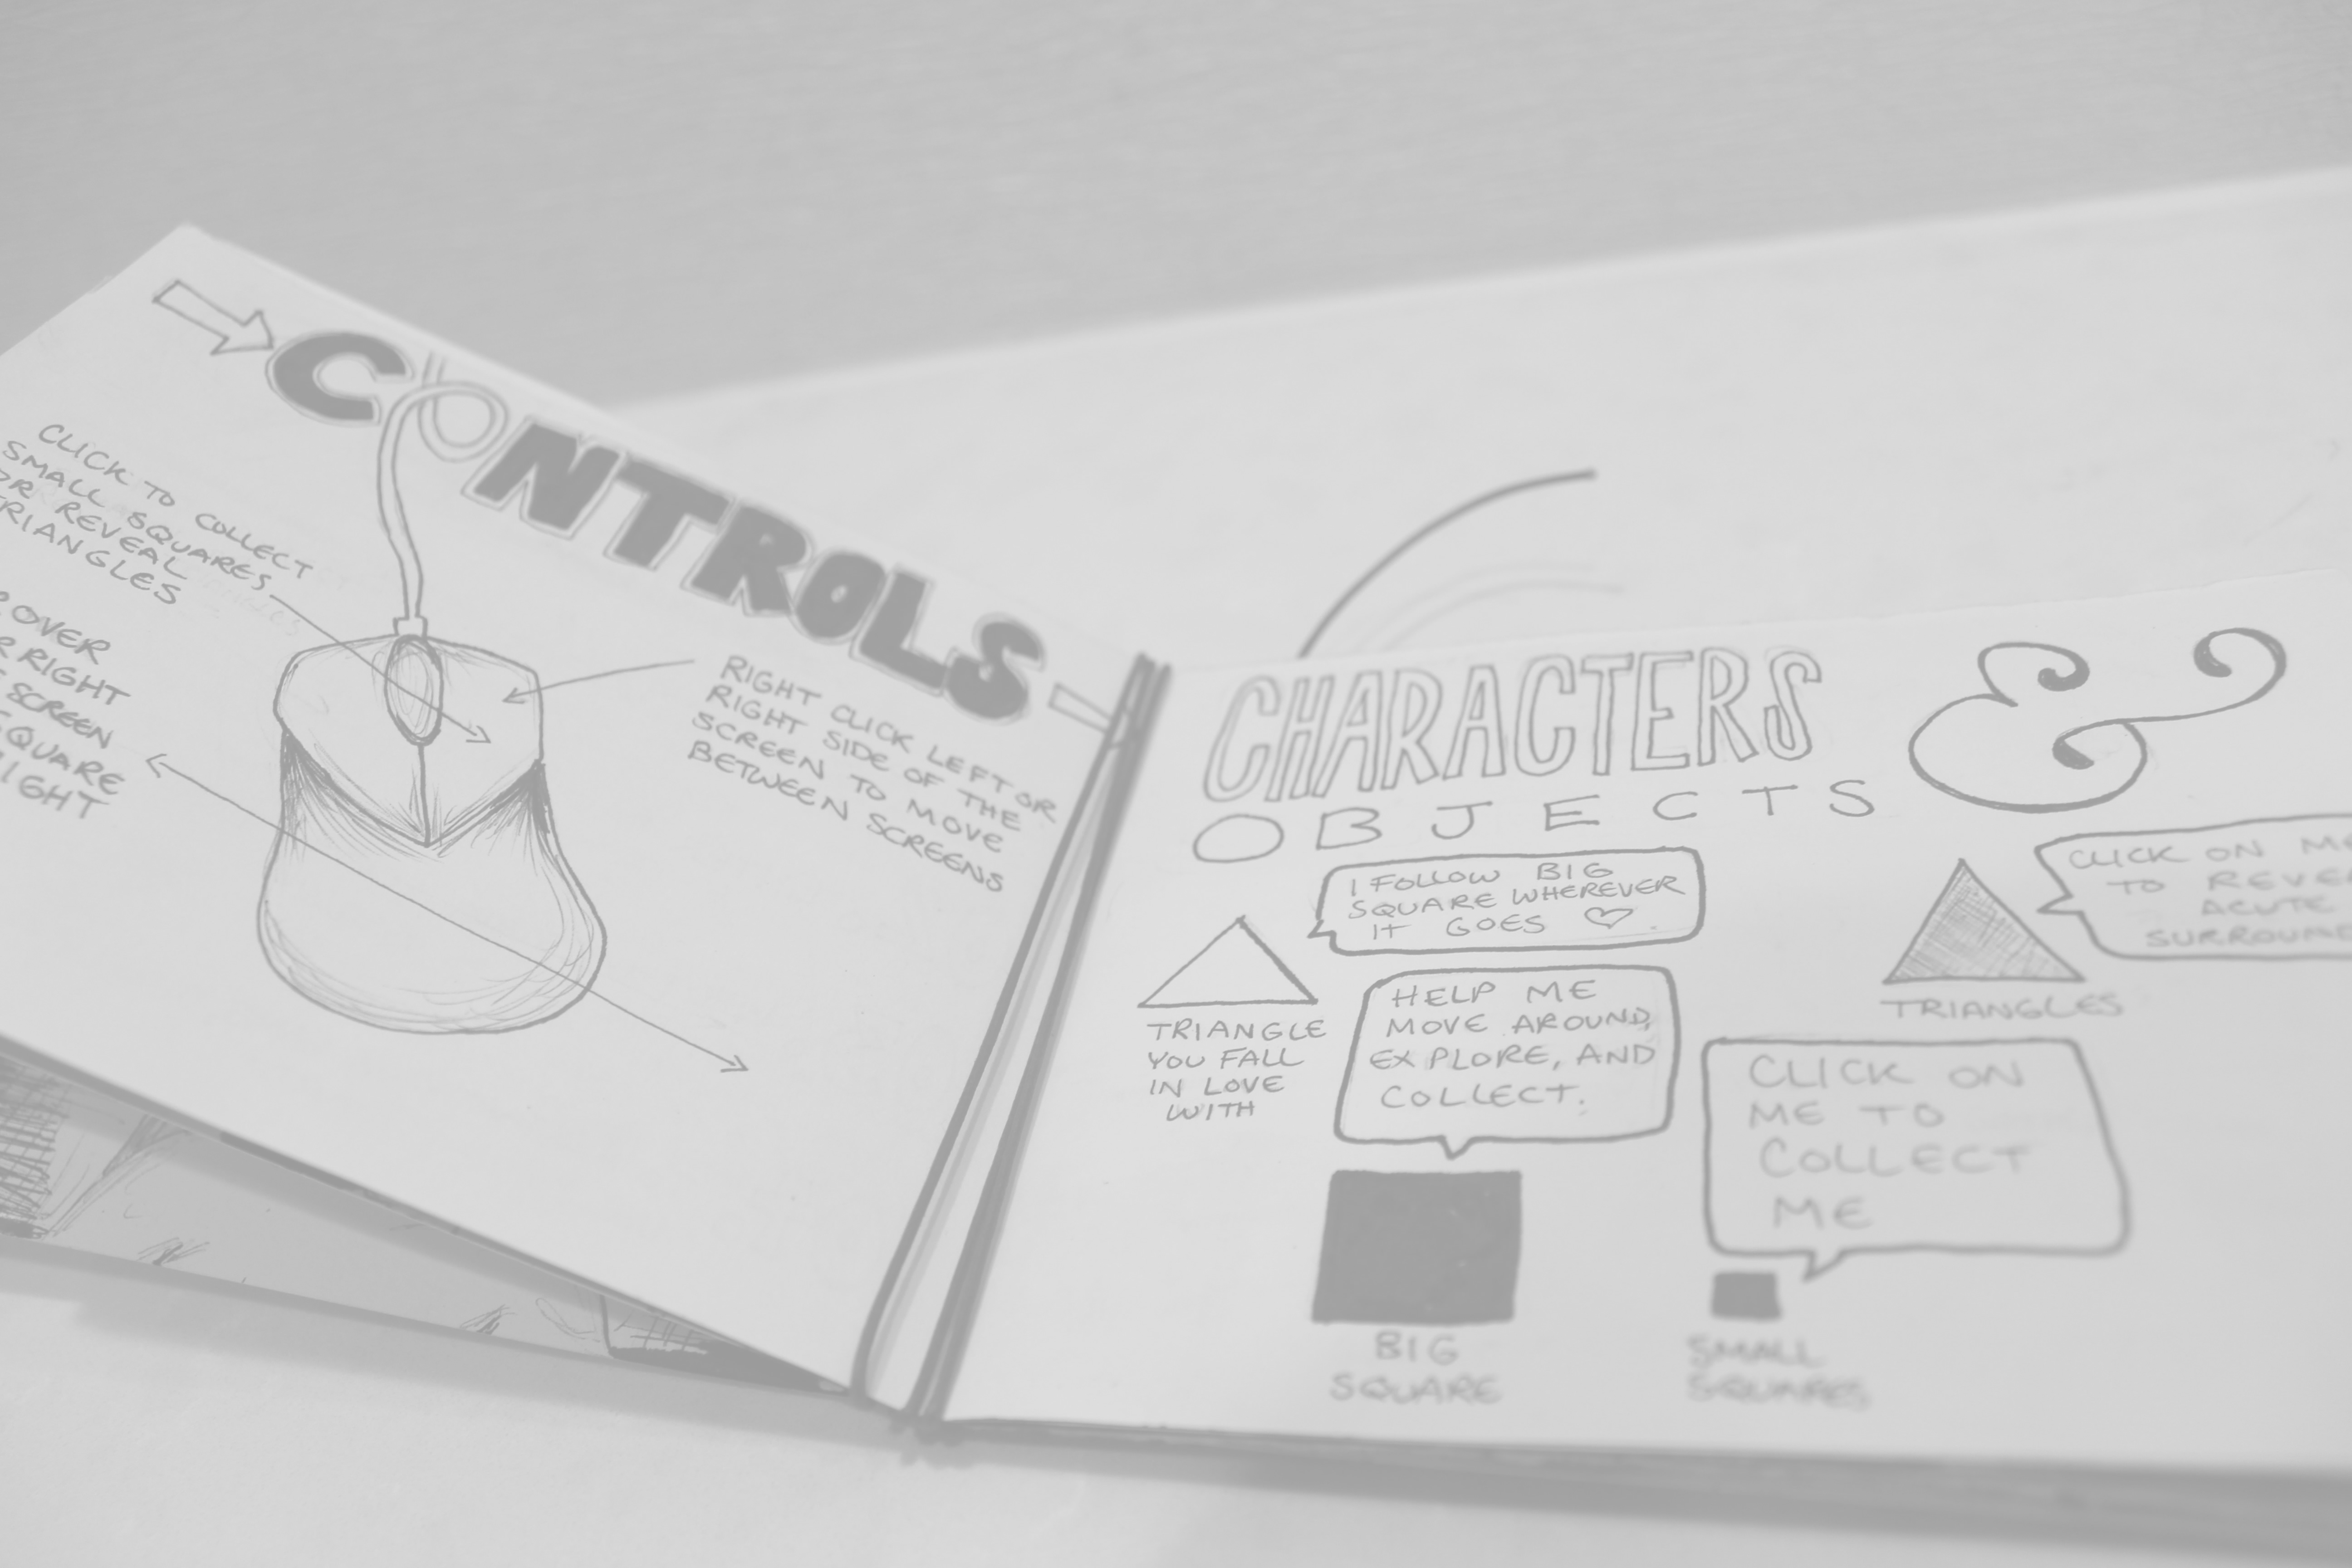 CONTROLS
CLICK TO COLLECT
SMALL SQUARES
OR REVEAL
TRIANGLES
OVER
RIGHT
SCREEN
SQUARE
RIGHT
RIGHT CLICK LEFT OR
RIGHT SIDE OF THE
SCREEN TO MOVE
BETWEEN SCREENS
CHARACTERS &
OBJECTS
I FOLLOW BIG
SQUARE WHEREVER
IT GOES
TRIANGLE
YOU FALL
IN LOVE
WITH
HELP ME
MOVE AROUND,
EXPLORE, AND
COLLECT.
BIG
SQUARE
CLICK ON ME
TO
ACUTE
TRIANGLES
CLICK ON
ME TO
COLLECT
ME
SMALL
SQUARES